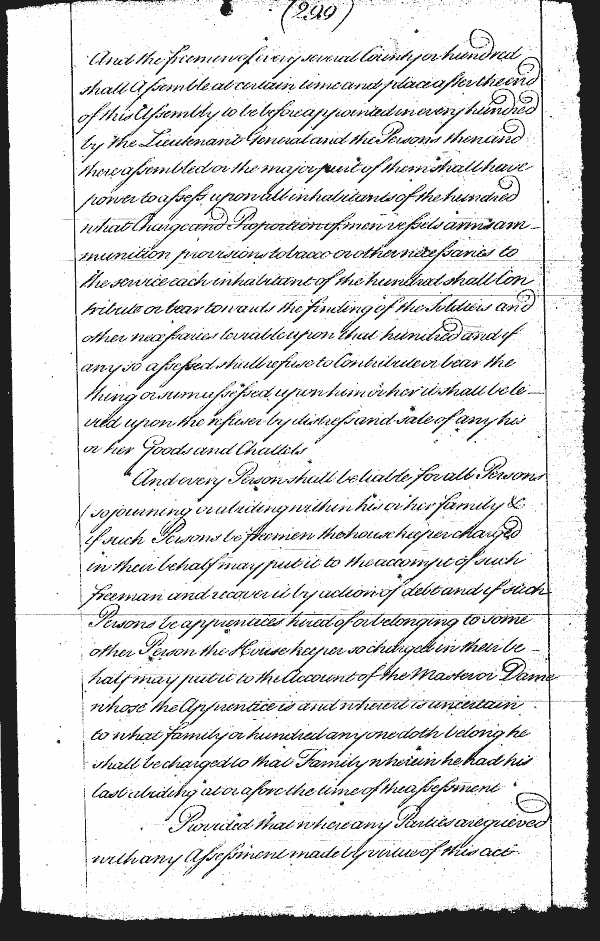 (299)
And the freemen of every several County or hundred
shall Assemble at certain time and place after the end
of this Assembly to be before appointed in every hundred
by the Lieutenant General and the Persons then and
there assembled or the major part of them shall have
power to assess upon all inhabitants of the hundred
what Charge and Proportion of men vessils arms am-
munition provisions tobacco or other necessaries to
the service each inhabitant of the hundred shall Con
tribute or bear towards the finding of the Soldiers and
other necessaries leviable upon that hundred and if
any so assessed shall refuse to Contribute or bear the
thing or sum assessed upon him or her it shall be le-
vied upon the refuser by distress and sale of any his
or her Goods and Chattels
And every Person shall be liable for all Persons
sojourning or abiding within his or her family &
if such Persons be freemen the house keeper charged
in their behalf may put it to the accompt of such
freeman and recover it by action of debt and if such
Persons be apprentices hired of or belonging to some
other Person the House keeper so charged in their be-
half may put it to the Account of the Master or Dame
whose the Apprentice is and where it is uncertain
to what family or hundred any one doth belong he
shall be charged to that Family wherein he had his
last abiding at or afore the time of the assessment
Provided that where any Parties are grieved
with any Assessment made by virtue of this act